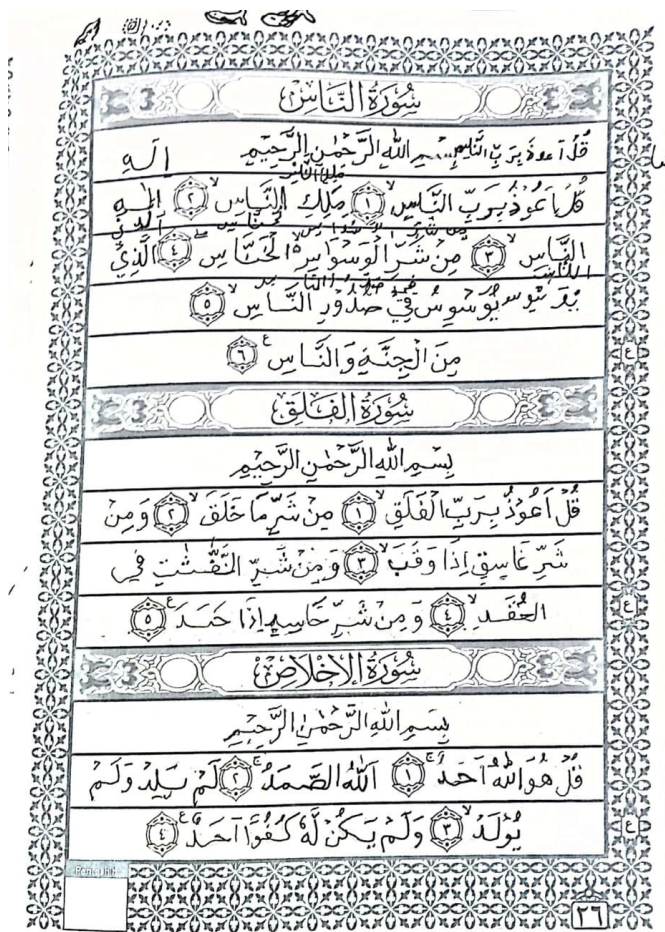 سُورَةُ النَّاسِ
قُلْ اَعُوْذُ بِرَبِّ النَّاسِ بِسْمِ اللهِ الرَّحْمٰنِ الرَّحِيْمِ اِلَهِ
مَلِكِ النَّاسِ
قُلْ اَعُوْذُ بِرَبِّ النَّاسِ ۙ ﴿١﴾ مَلِكِ النَّاسِ ۙ ﴿٢﴾ اِلٰهِ
النَّاسِ ۙ ﴿٣﴾ مِنْ شَرِّ الْوَسْوَاسِ ەۙ الْخَنَّاسِ ۖ ﴿٤﴾ الَّذِيْ
يُوَسْوِسُ فِيْ صُدُوْرِ النَّاسِ ۙ ﴿٥﴾
مِنَ الْجِنَّةِ وَالنَّاسِ ﴿٦﴾
ع
سُورَةُ الْفَلَقِ
بِسْمِ اللهِ الرَّحْمٰنِ الرَّحِيْمِ
قُلْ اَعُوْذُ بِرَبِّ الْفَلَقِ ۙ ﴿١﴾ مِنْ شَرِّ مَا خَلَقَ ۙ ﴿٢﴾ وَمِنْ
شَرِّ غَاسِقٍ اِذَا وَقَبَ ۙ ﴿٣﴾ وَمِنْ شَرِّ النَّفّٰثٰتِ فِى
الْعُقَدِ ۙ ﴿٤﴾ وَمِنْ شَرِّ حَاسِدٍ اِذَا حَسَدَ ﴿٥﴾
ع
سُورَةُ الْاِخْلَاصِ
بِسْمِ اللهِ الرَّحْمٰنِ الرَّحِيْمِ
قُلْ هُوَ اللهُ اَحَدٌ ۚ ﴿١﴾ اَللهُ الصَّمَدُ ۚ ﴿٢﴾ لَمْ يَلِدْ وَلَمْ
يُوْلَدْ ۙ ﴿٣﴾ وَلَمْ يَكُنْ لَّهٗ كُفُوًا اَحَدٌ ﴿٤﴾
ع
٢٦